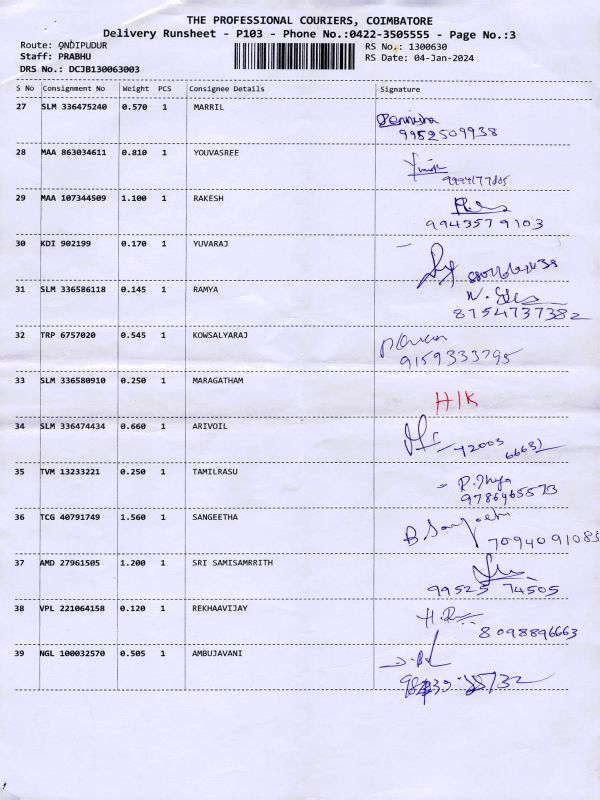 THE PROFESSIONAL COURIERS, COIMBATORE
Delivery Runsheet - P103 - Phone No.:0422-3505555 - Page No.:3
Route: ONDIPUDUR
RS No.: 1300630
Staff: PRABHU
RS Date: 04-Jan-2024
DRS No.: DCJB130063003
S No Consignment No Weight PCS Consignee Details Signature
27 SLM 336475240 0.570 1 MARRIL
9952509938
28 MAA 863034611 0.810 1 YOUVASREE
29 MAA 107344509 1.100 1 RAKESH
9943579103
30 KDI 902199 0.170 1 YUVARAJ
31 SLM 336586118 0.145 1 RAMYA
8754737382
32 TRP 6757020 0.545 1 KOWSALYARAJ
9159333795
33 SLM 336580910 0.250 1 MARAGATHAM
H/K
34 SLM 336474434 0.660 1 ARIVOIL
72003
66631
35 TVM 13233221 0.250 1 TAMILRASU
36 TCG 40791749 1.560 1 SANGEETHA
B Sangeetha
7094091085
37 AMD 27961505 1.200 1 SRI SAMISAMRRITH
99525 74505
38 VPL 221064158 0.120 1 REKHAAVIJAY
8098896663
39 NGL 100032570 0.505 1 AMBUJAVANI